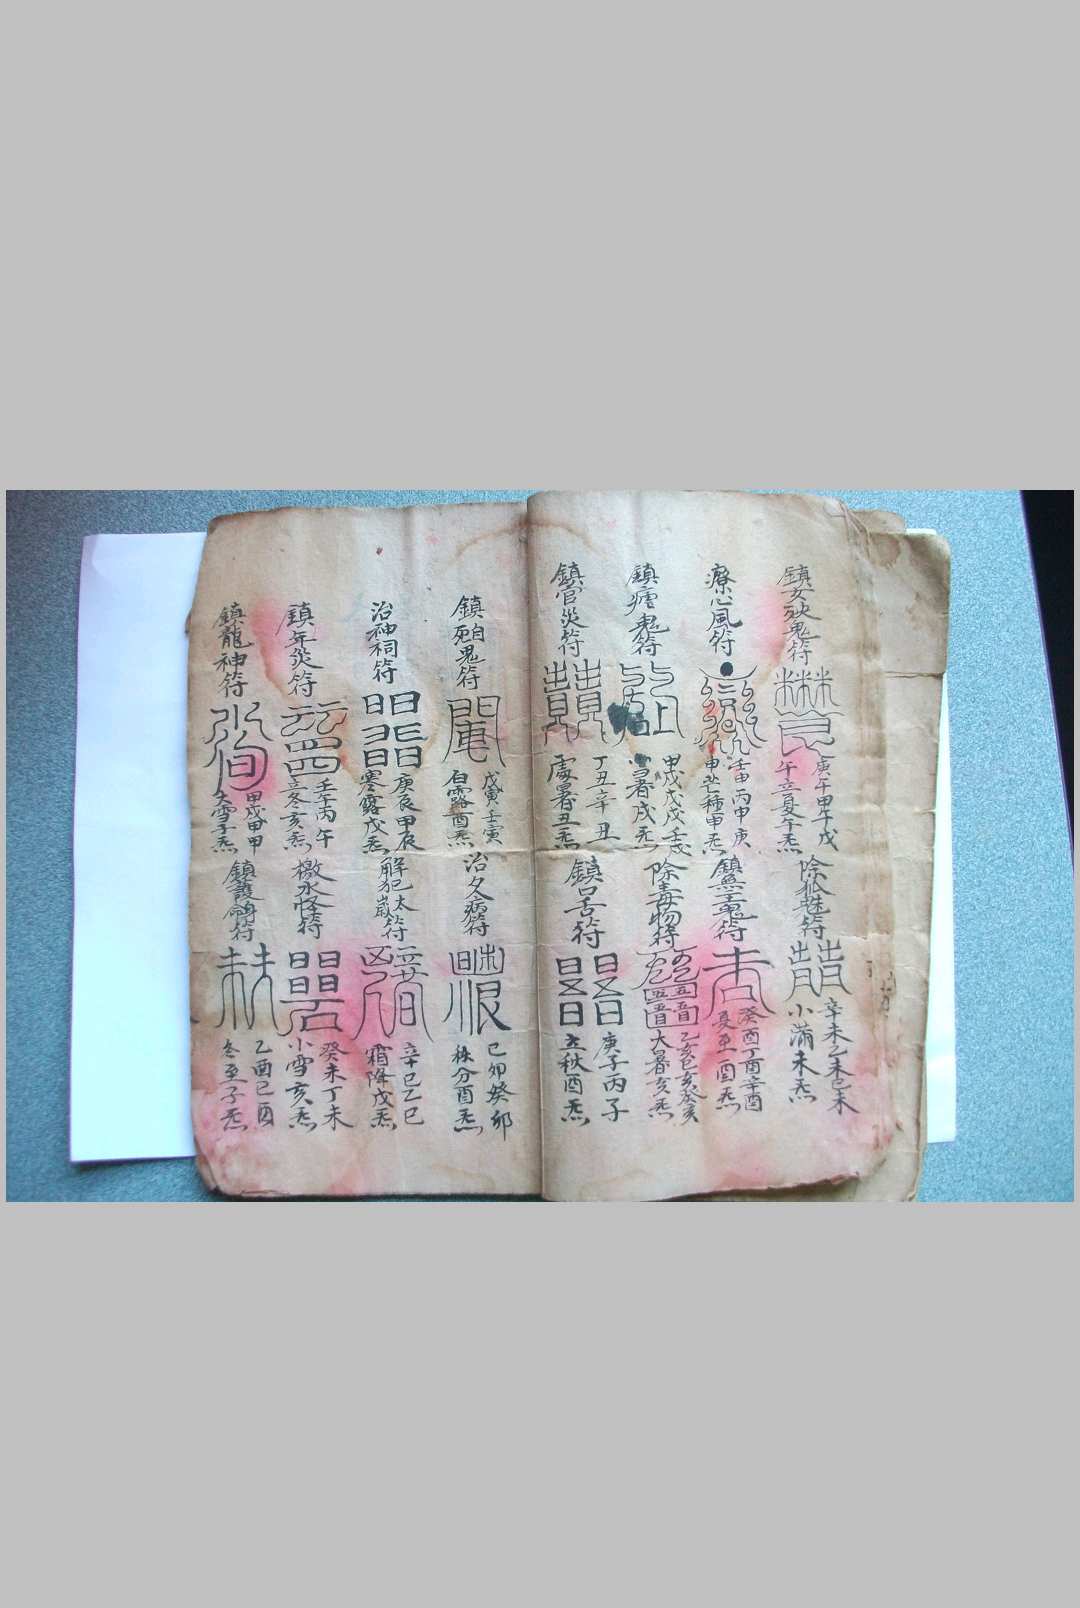 鎮女殃鬼符
庚午甲午戊
午立夏午炁
除狐魅符
辛未乙未己未
小滿未炁
療心風符
壬申丙申庚
申芒種申炁
癸酉丁酉辛酉
夏至酉炁
鎮瘧鬼符
甲戌戊戌壬戌
小暑戌炁
除毒物符
乙亥己亥癸亥
大暑亥炁
鎮官災符
丁丑辛丑
處暑丑炁
鎮口舌符
庚子丙子
立秋酉炁
鬼符
戊寅壬寅
白露酉炁
治久病符
己卯癸卯
秋分酉炁
治神祠符
庚辰甲辰
寒露戊炁
解犯太歲符
辛巳乙巳
霜降戊炁
鎮年災符
壬午丙午
立冬亥炁
水怪符
癸未丁未
小雪亥炁
鎮龍神符
甲戌甲甲
大雪子炁
鎮護符
乙酉己酉
冬至子炁